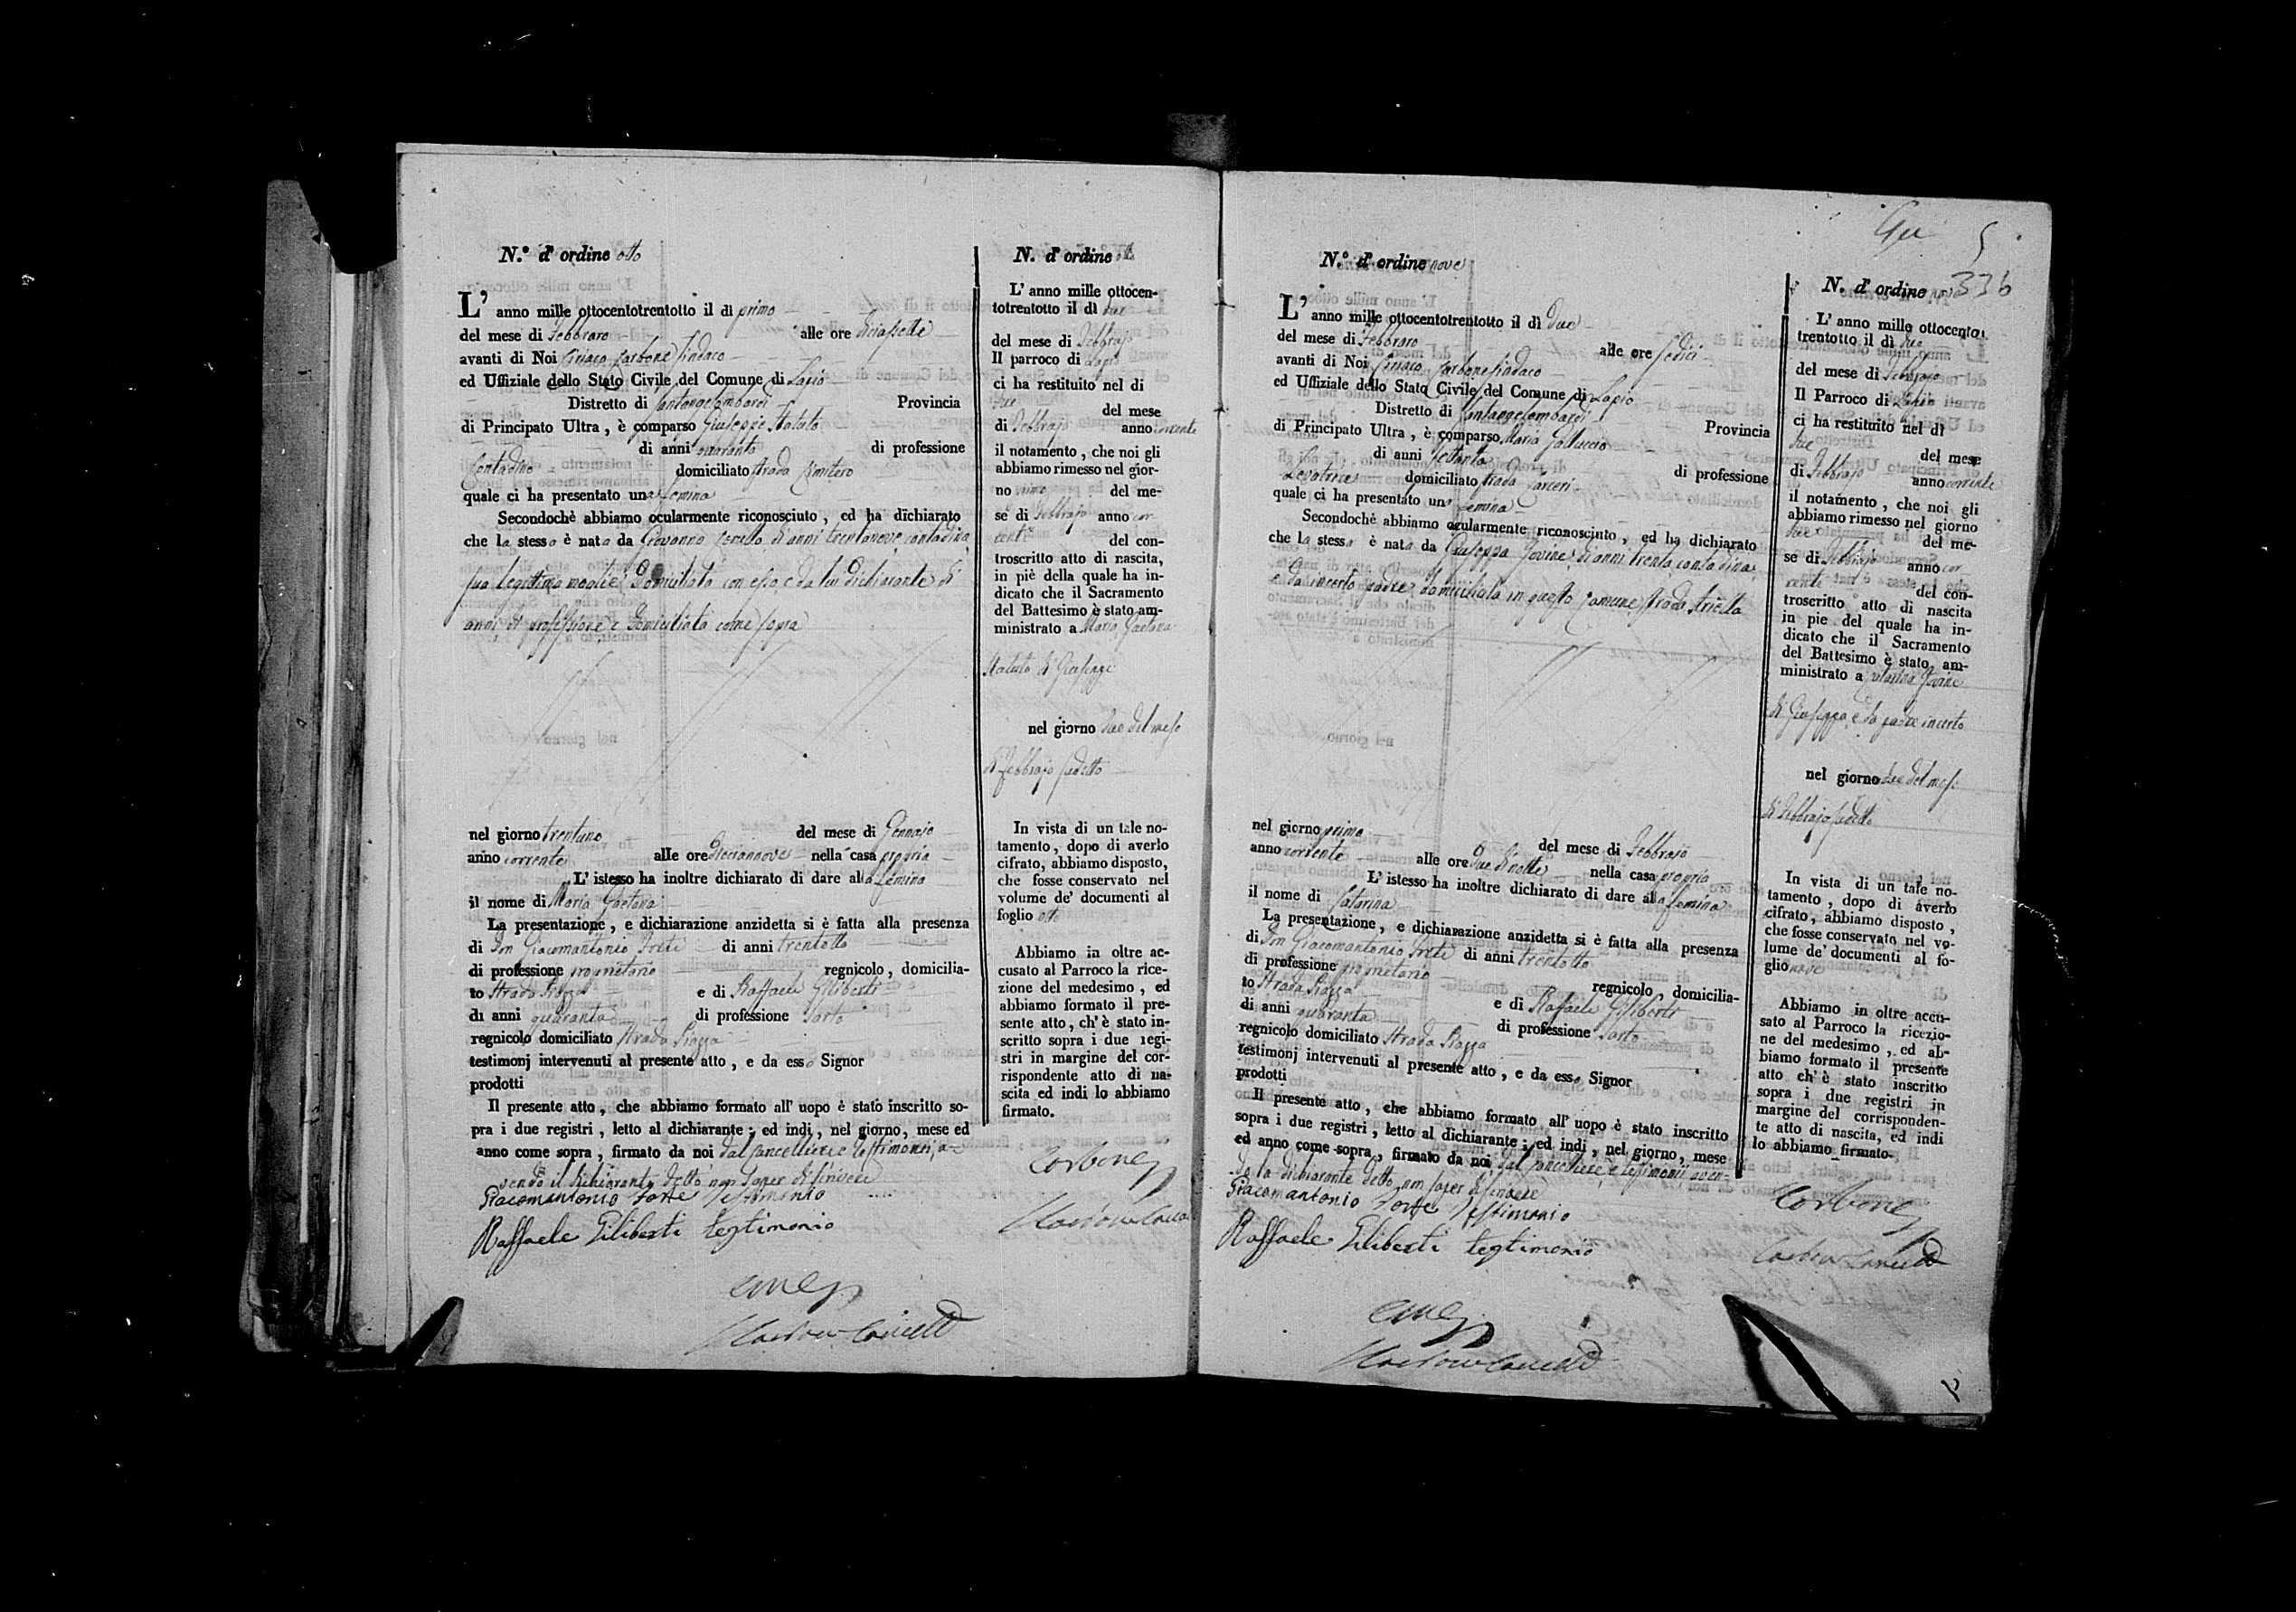 N.° d' ordine otto
L' anno mille ottocentotrentotto il di primo
del mese di Febbraro alle ore diciassette
avanti di Noi Ciriaco Carbone Sindaco
ed Uffiziale dello Stato Civile del Comune di Lapio
Distretto di Santangelombardi Provincia
di Principato Ultra, è comparso Giuseppe
di anni quaranta di professione
Contadino domiciliato strada Cimitero
quale ci ha presentato una femina
Secondochè abbiamo ocularmente riconosciuto, ed ha dichiarato
che la stessa è nata da Giovanna di anni trentanove contadina
sua legittima moglie Domiciliata con esso, e da lui dichiarante di
anni di professione, e Domiciliato come sopra
nel giorno trentuno del mese di Gennajo
anno corrente alle ore diciannove nella casa propria
L' istesso ha inoltre dichiarato di dare alla femina
il nome di Maria Gaetana
La presentazione, e dichiarazione anzidetta si è fatta alla presenza
di Don Giacomantonio Forte di anni trentotto
di professione proprietario regnicolo, domicilia-
to Strada Piazza e di Raffaele Giliberti
di anni quaranta di professione Sarto
regnicolo domiciliato Strada Piazza
testimonj intervenuti al presente atto, e da esso Signor
prodotti
Il presente atto, che abbiamo formato all' uopo è stato inscritto so-
pra i due registri, letto al dichiarante; ed indi, nel giorno, mese ed
anno come sopra, firmato da noi dal Cancelliere e testimonii, a-
vendo il dichiarante detto non saper di scrivere
Giacomantonio Forte testimonio
Raffaele Giliberti testimonio
N. d' ordine otto
L' anno mille ottocen-
totrentotto il dì due
del mese di Febbrajo
Il parroco di Lapio
ci ha restituito nel di
due del mese
di Febbrajo anno corrente
il notamento, che noi gli
abbiamo rimesso nel gior-
no primo del me-
se di Febbrajo anno cor
rente del con-
troscritto atto di nascita,
in piè della quale ha in-
dicato che il Sacramento
del Battesimo è stato am-
ministrato a Maria Gaetana
di Giuseppe
nel giorno due del mese
di Febbrajo sudetto
In vista di un tale no-
tamento, dopo di averlo
cifrato, abbiamo disposto,
che fosse conservato nel
volume de' documenti al
foglio otto
Abbiamo in oltre ac-
cusato al Parroco la rice-
zione del medesimo, ed
abbiamo formato il pre-
sente atto, ch' è stato in-
scritto sopra i due regi-
stri in margine del cor-
rispondente atto di na-
scita ed indi lo abbiamo
firmato.
Carbone
5
336
N.° d' ordine nove
L' anno mille ottocentotrentotto il di due
del mese di Febbraro alle ore sedici
avanti di Noi Ciriaco Carbone Sindaco
ed Uffiziale dello Stato Civile del Comune di Lapio
Distretto di Santangelombardi Provincia
di Principato Ultra, è comparso Maria Galluccio
di anni settanta di professione
Levatrice domiciliato strada Carceri
quale ci ha presentato una femina
Secondochè abbiamo ocularmente riconosciuto, ed ha dichiarato
che la stessa è nata da Giuseppa Jovine di anni trenta contadina,
e da incerto padre, domiciliata in questo Comune strada
nel giorno primo del mese di Febbrajo
anno corrente alle ore due di notte nella casa propria
L' istesso ha inoltre dichiarato di dare alla femina
il nome di Catarina
La presentazione, e dichiarazione anzidetta si è fatta alla presenza
di Don Giacomantonio Forte di anni trentotto
di professione proprietario regnicolo, domicilia-
to Strada Piazza e di Raffaele Giliberti
di anni quaranta di professione Sarto
regnicolo domiciliato Strada Piazza
testimonj intervenuti al presente atto, e da esso Signor
prodotti
Il presente atto, che abbiamo formato all' uopo è stato inscritto
sopra i due registri, letto al dichiarante; ed indi, nel giorno, mese
ed anno come sopra, firmato da noi, dal Cancelliere, e testimonii aven-
do la dichiarante detto non saper di scrivere
Giacomantonio Forte testimonio
Raffaele Giliberti testimonio
N. d' ordine nove
L' anno mille ottocento
trentotto il dì due
del mese di Febbrajo
Il Parroco di Lapio
ci ha restituito nel dì
due del mese
di Febbrajo anno corrente
il notamento, che noi gli
abbiamo rimesso nel giorno
due del me-
se di Febbrajo anno cor
rente del con-
troscritto atto di nascita
in pie del quale ha in-
dicato che il Sacramento
del Battesimo è stato am-
ministrato a Catarina Jovine
di Giuseppa, e da padre incerto
nel giorno due del mese
di Febbrajo sudetto
In vista di un tale no-
tamento, dopo di averlo
cifrato, abbiamo disposto,
che fosse conservato nel vo-
lume de' documenti al fo-
glio nove
Abbiamo in oltre accu-
sato al Parroco la ricezio-
ne del medesimo, ed ab-
biamo formato il presente
atto ch' è stato inscritto
sopra i due registri in
margine del corrisponden-
te atto di nascita, ed indi
lo abbiamo firmato.
Carbone